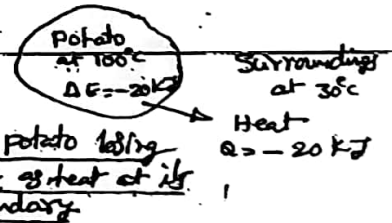 Potato
at 100°C
ΔE=-20KJ
Surroundings
at 30°C
Heat
Q=-20 KJ
potato losing
as heat at its